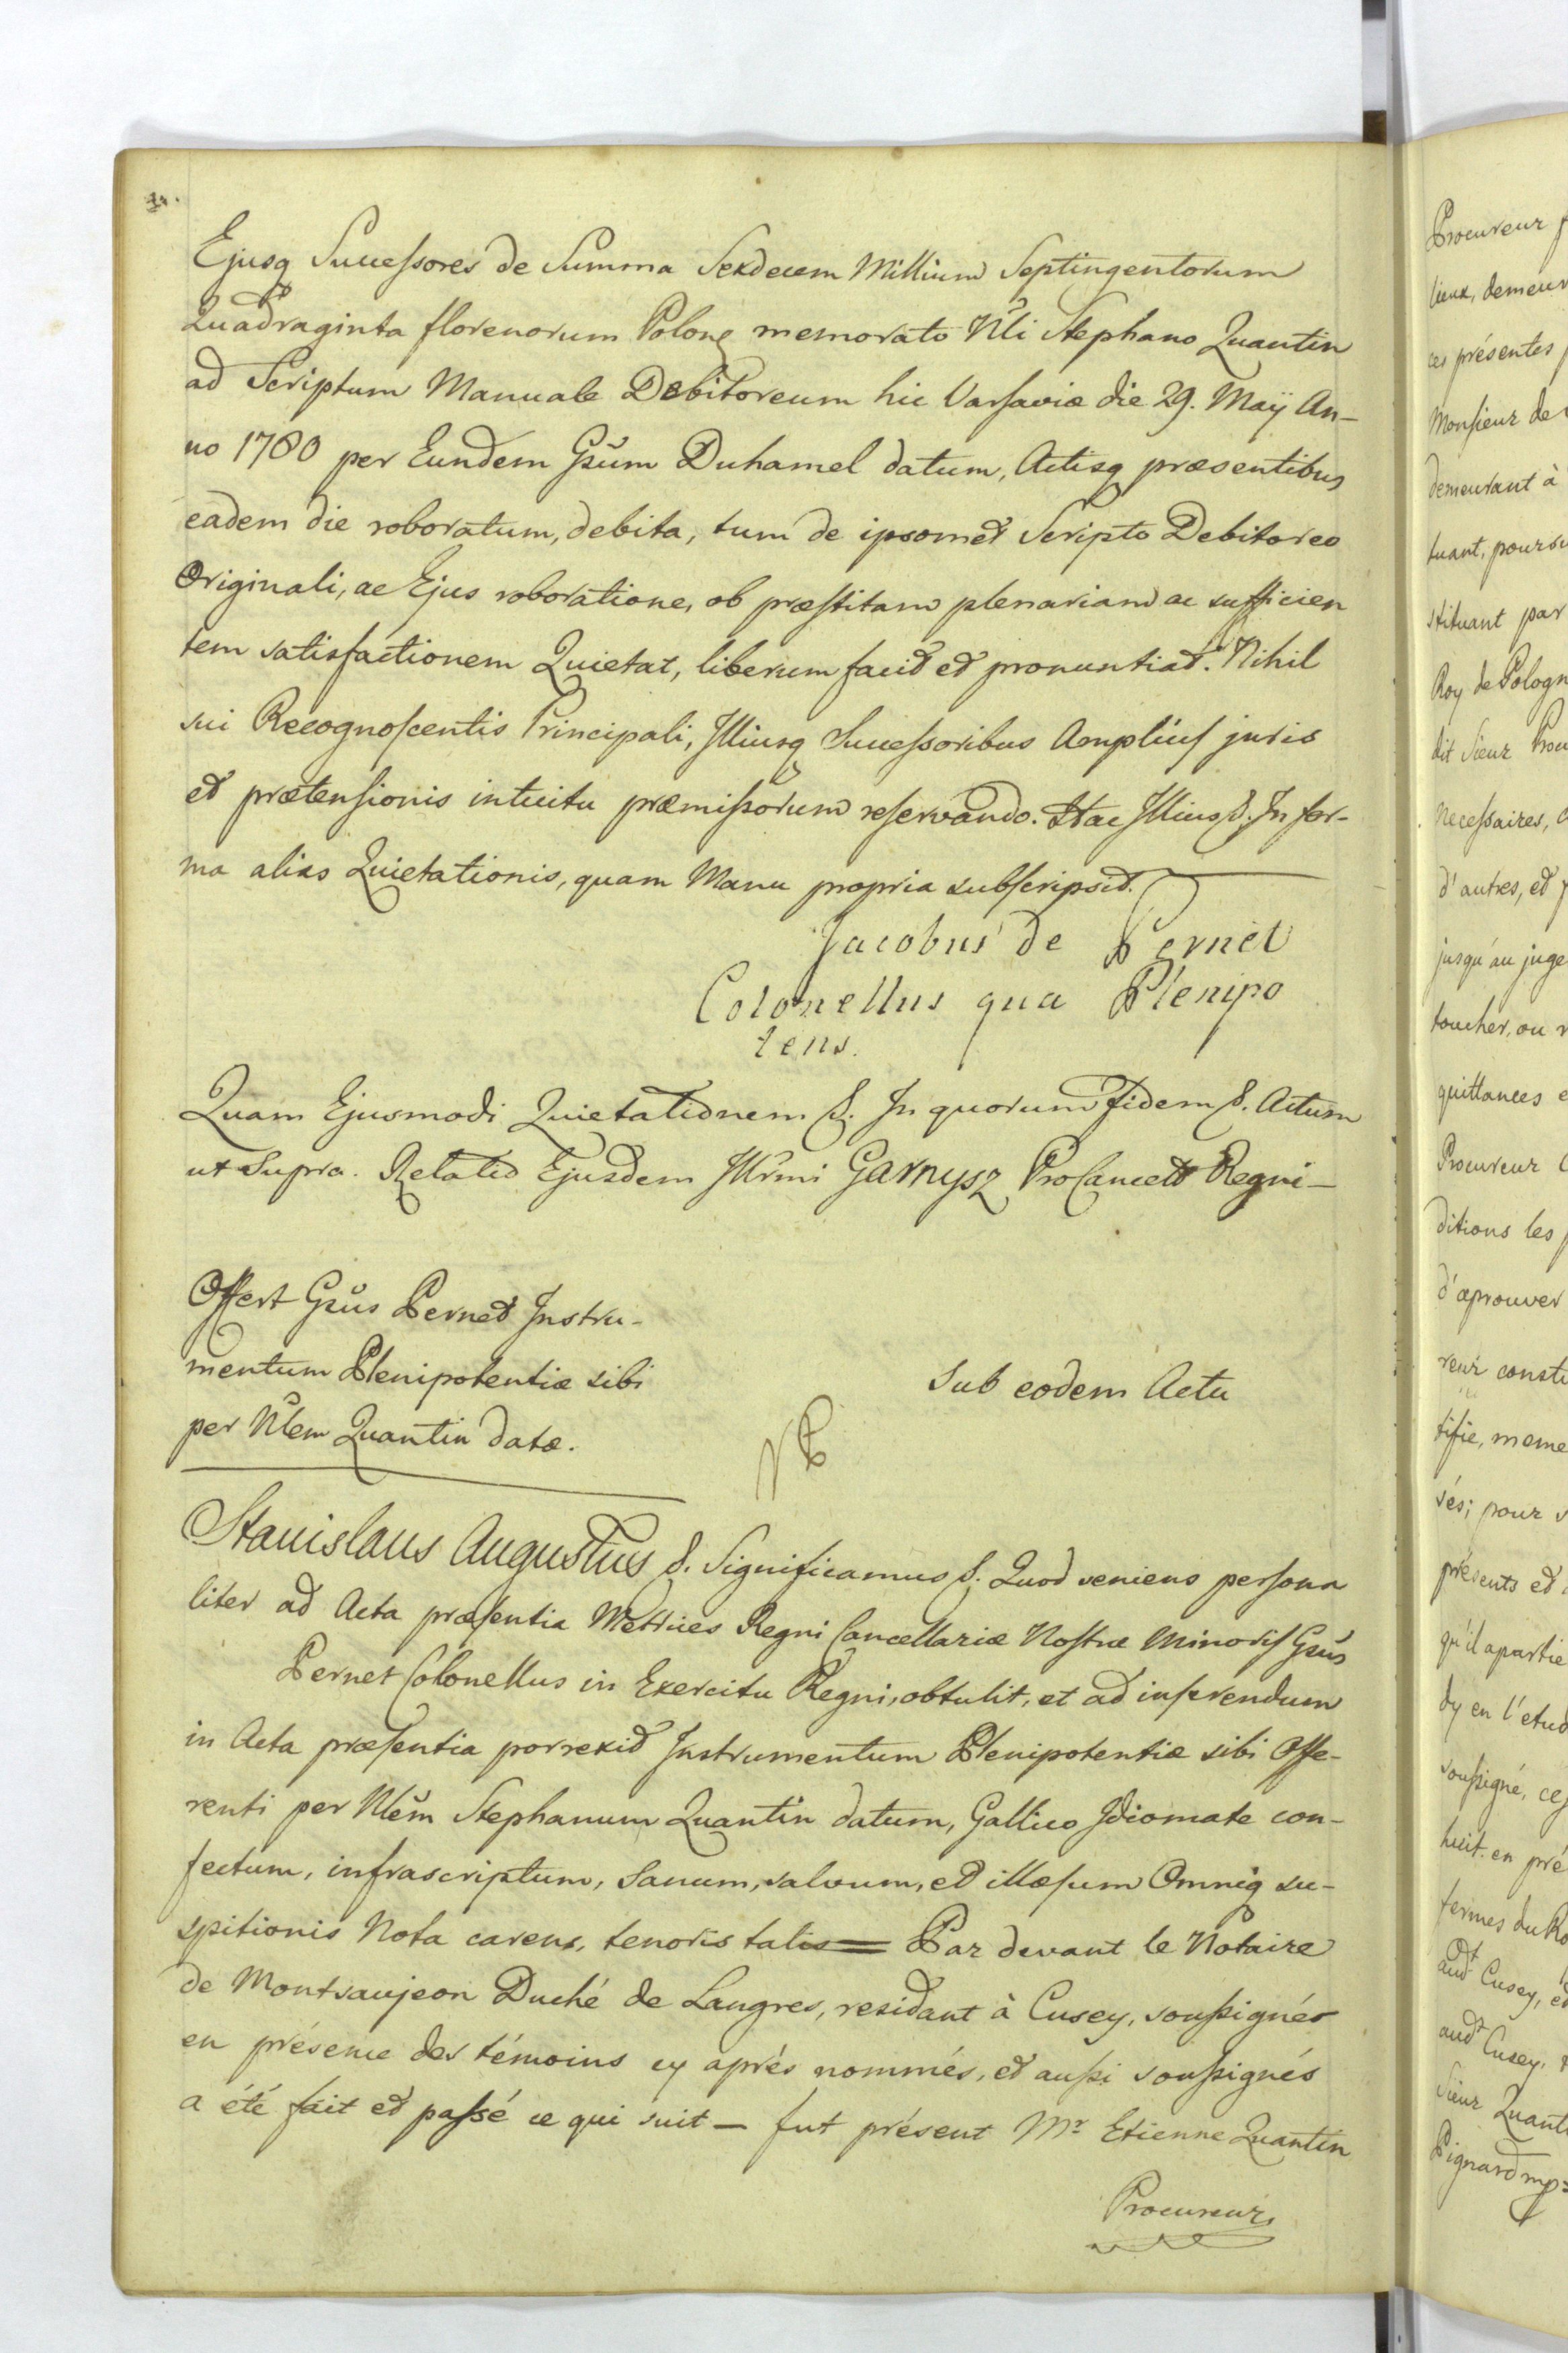 Ejusq Successores de Summa Sexdecem Millium Septingentorum
Quadraginta florenorum Polonq memorato Nli Stephano Quantin
ad Scriptum Manuale Debitoreum hic Varsaviæ die 29. Maÿ An-
no 1780 per Eundem Gsum Duhamel datum, Actisq præsentibus
eadem die roboratum, debita, tum de ipsomet Scripto Debitoreo
Originali, ac Ejus roboratione, ob præstitam plenariam ac sufficien
tem satisfactionem Quietat, liberum facit et pronuntiat. Nihil
sui Recognoscentis Principali, Illiusq Successoribus Amplius juris
et prætensionis intuitu præmissorum reservando. Hac Illius &. In for-
ma alias Quietationis, quam Manu propria subscripsit.
Jacobus de Pernet
Colonellus qua Plenipo
tens.
Quam Ejusmodi Quietationem &. In quorum Fidem &. Actum
ut Supra. Relatio Ejusdem Illrmi Garnysz ProCancell Regni-
Offert Gsus Pernet Instru-
mentum Plenipotentiæ sibi
per Nlem Quantin datæ.
Sub eodem Actu
Stanislaus Augustus &. Significamus &. Quod veniens persona
liter ad Acta præsentia Metrices Regni Cancellariæ Nostræ Minoris Gsus
Pernet Colonellus in Exercitu Regni, obtulit, et ad inserendum
in Acta præsentia porrexit Instrumentum Plenipotentiæ sibi Offe-
renti per Nlem Stephanum Quantin datum, Gallico Idiomate con-
fectum, infrascriptum, Sanum, salvum, et illæsum Omniq su-
spitionis Nota carens, tenoris talis= Par devant le Notaire
de Montsaujeon Duché de Langres, residant à Cusey, soussignés
en présence des témoins cy après nommés, et aussi soussignés
a été fait et passé ce qui suit - fut présent Mr Etienne Quantin
Procureur
Procureur
lieux, demeur
ces présentes
Monsieur de
demeurant à
tuant, poursu
stituant par
Roy de Pologn
dit Sieur Procu
necessaires,
d'autres, et
jusqu'au juge
toucher, ou
quittances
Procureur
ditions les
d'aprouver
reur consti
tifie, meme
sés; pour
présents et
qu'il apartie
dy en l'etud
soussigné, ce
huit en pré
fermes du Ro
audt Cusey, et
audt Cusey,
Sieur Quant
Pignard mp